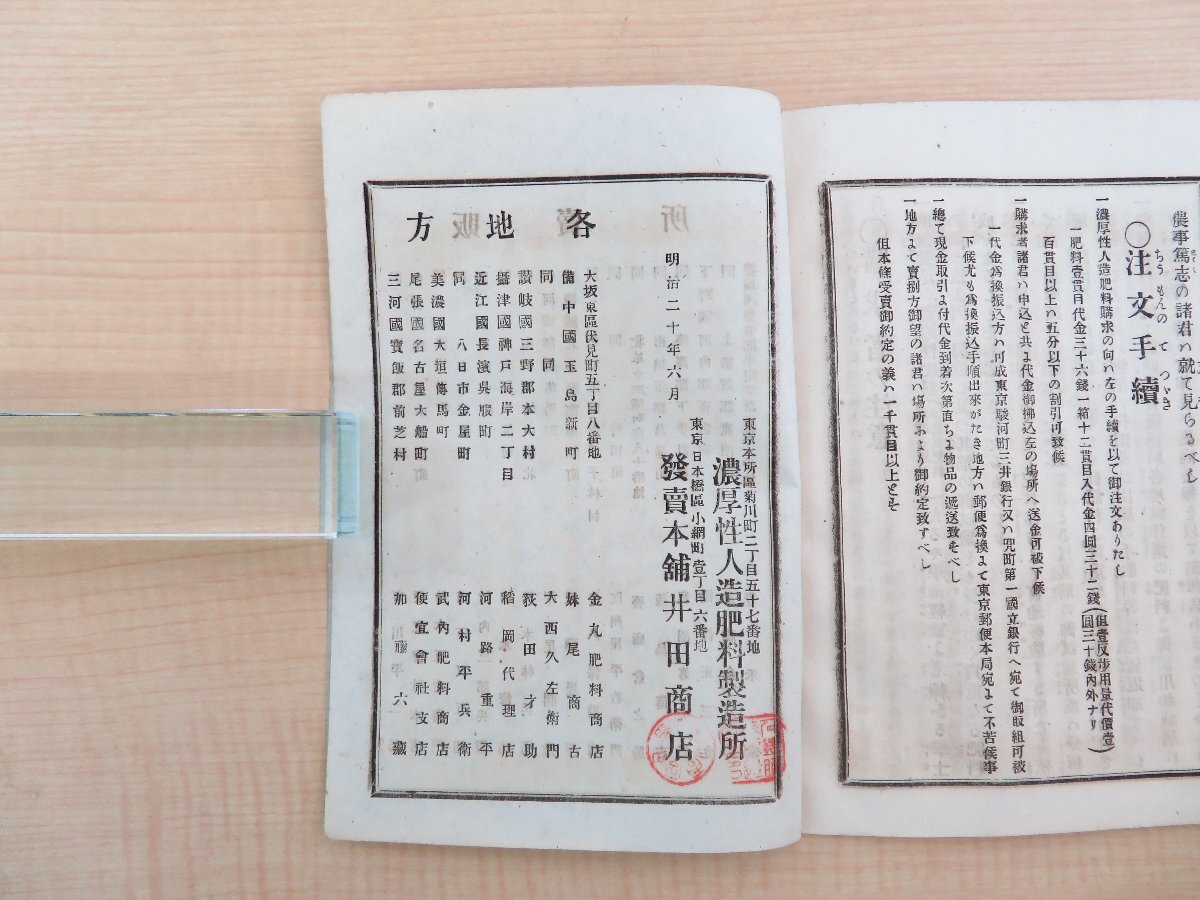 農事篤志の諸君ハ就て見らるべし
〇注文手續
ちうもんのてつゞき
一濃厚性人造肥料購求の向ハ左の手續を以て御注文ありたし
一肥料壹貫目代金三十六錢一箱十二貫目入代金四圓三十二錢(但壹反歩用量代價壹圓三十錢內外ナリ)
百貫目以上ハ五分以下の割引可致候
一購求者諸君ハ申込と共よ代金御拂込左の場所へ送金可被下候
一代金爲換振込方ハ可成東京駿河町三井銀行又ハ兜町第一國立銀行へ宛て御取組可被
下候尤も爲換振込手順出來がたき地方ハ郵便爲換よて東京郵便本局宛よて不苦候事
一總て現金取引よ付代金到着次第直ちよ物品の遞送致をべし
一地方よて賣捌方御望の諸君ハ場所よより御約定致すべし
但本條受賣御約定の義ハ一千貫目以上とそ
東京本所區菊川町二丁目五十七番地
濃厚性人造肥料製造所
東京日本橋區小網町壹丁目六番地
發賣本舖井田商店
明治二十年六月
各地方
大坂東區伏見町五丁目八番地 金丸肥料商店
備中國玉島新町 妹尾商古
同同 大西久左衛門
讃岐國三野郡本大村 荻田才助
攝津國神戶海岸二丁目 稻岡代理店
近江國長濱呉服町 河路重平
同八日市金屋町 河村平兵衛
美濃國大垣傳馬町 武內肥料商店
尾張國名古屋大船町 便宜會社支店
三河國寶飯郡前芝村 加藤六藏